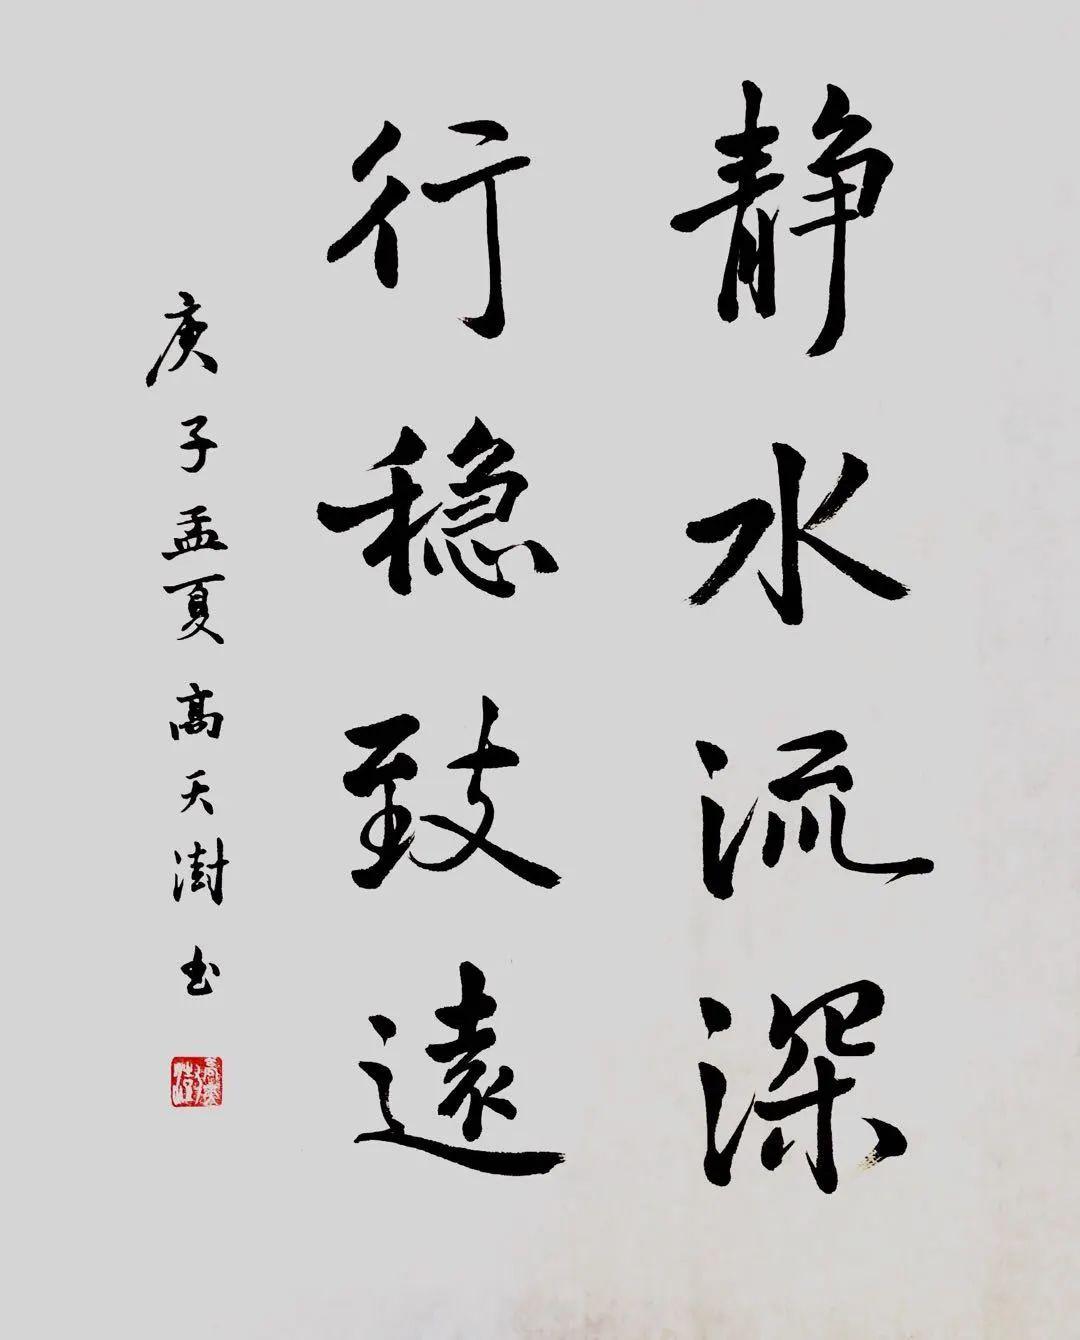 静水流深
行稳致遠
庚子孟夏高天澍书